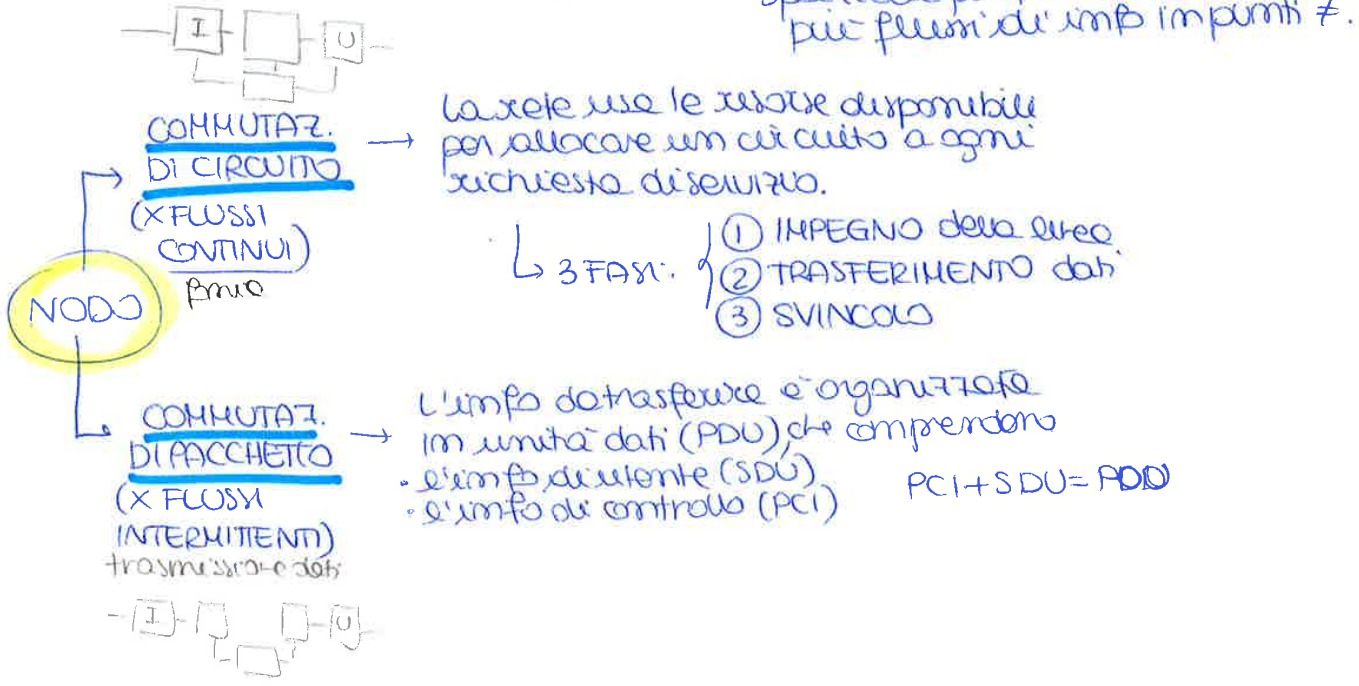 più flussi di info in punti ≠.
I
U
COMMUTAZ.
DI CIRCUITO
(X FLUSSI
CONTINUI)
fonia
→ La rete usa le risorse disponibili
per allocare un circuito a ogni
richiesta di servizio.
↳ 3 FASI:
① IMPEGNO della linea
② TRASFERIMENTO dati
③ SVINCOLO
NODO
COMMUTAZ.
DI PACCHETTO
(X FLUSSI
INTERMITTENTI)
trasmissione dati
→ L'info da trasferire è organizzata
in unità dati (PDU), che comprendono
• l'info di utente (SDU)
• l'info di controllo (PCI)
PCI+SDU=PDU
I
U